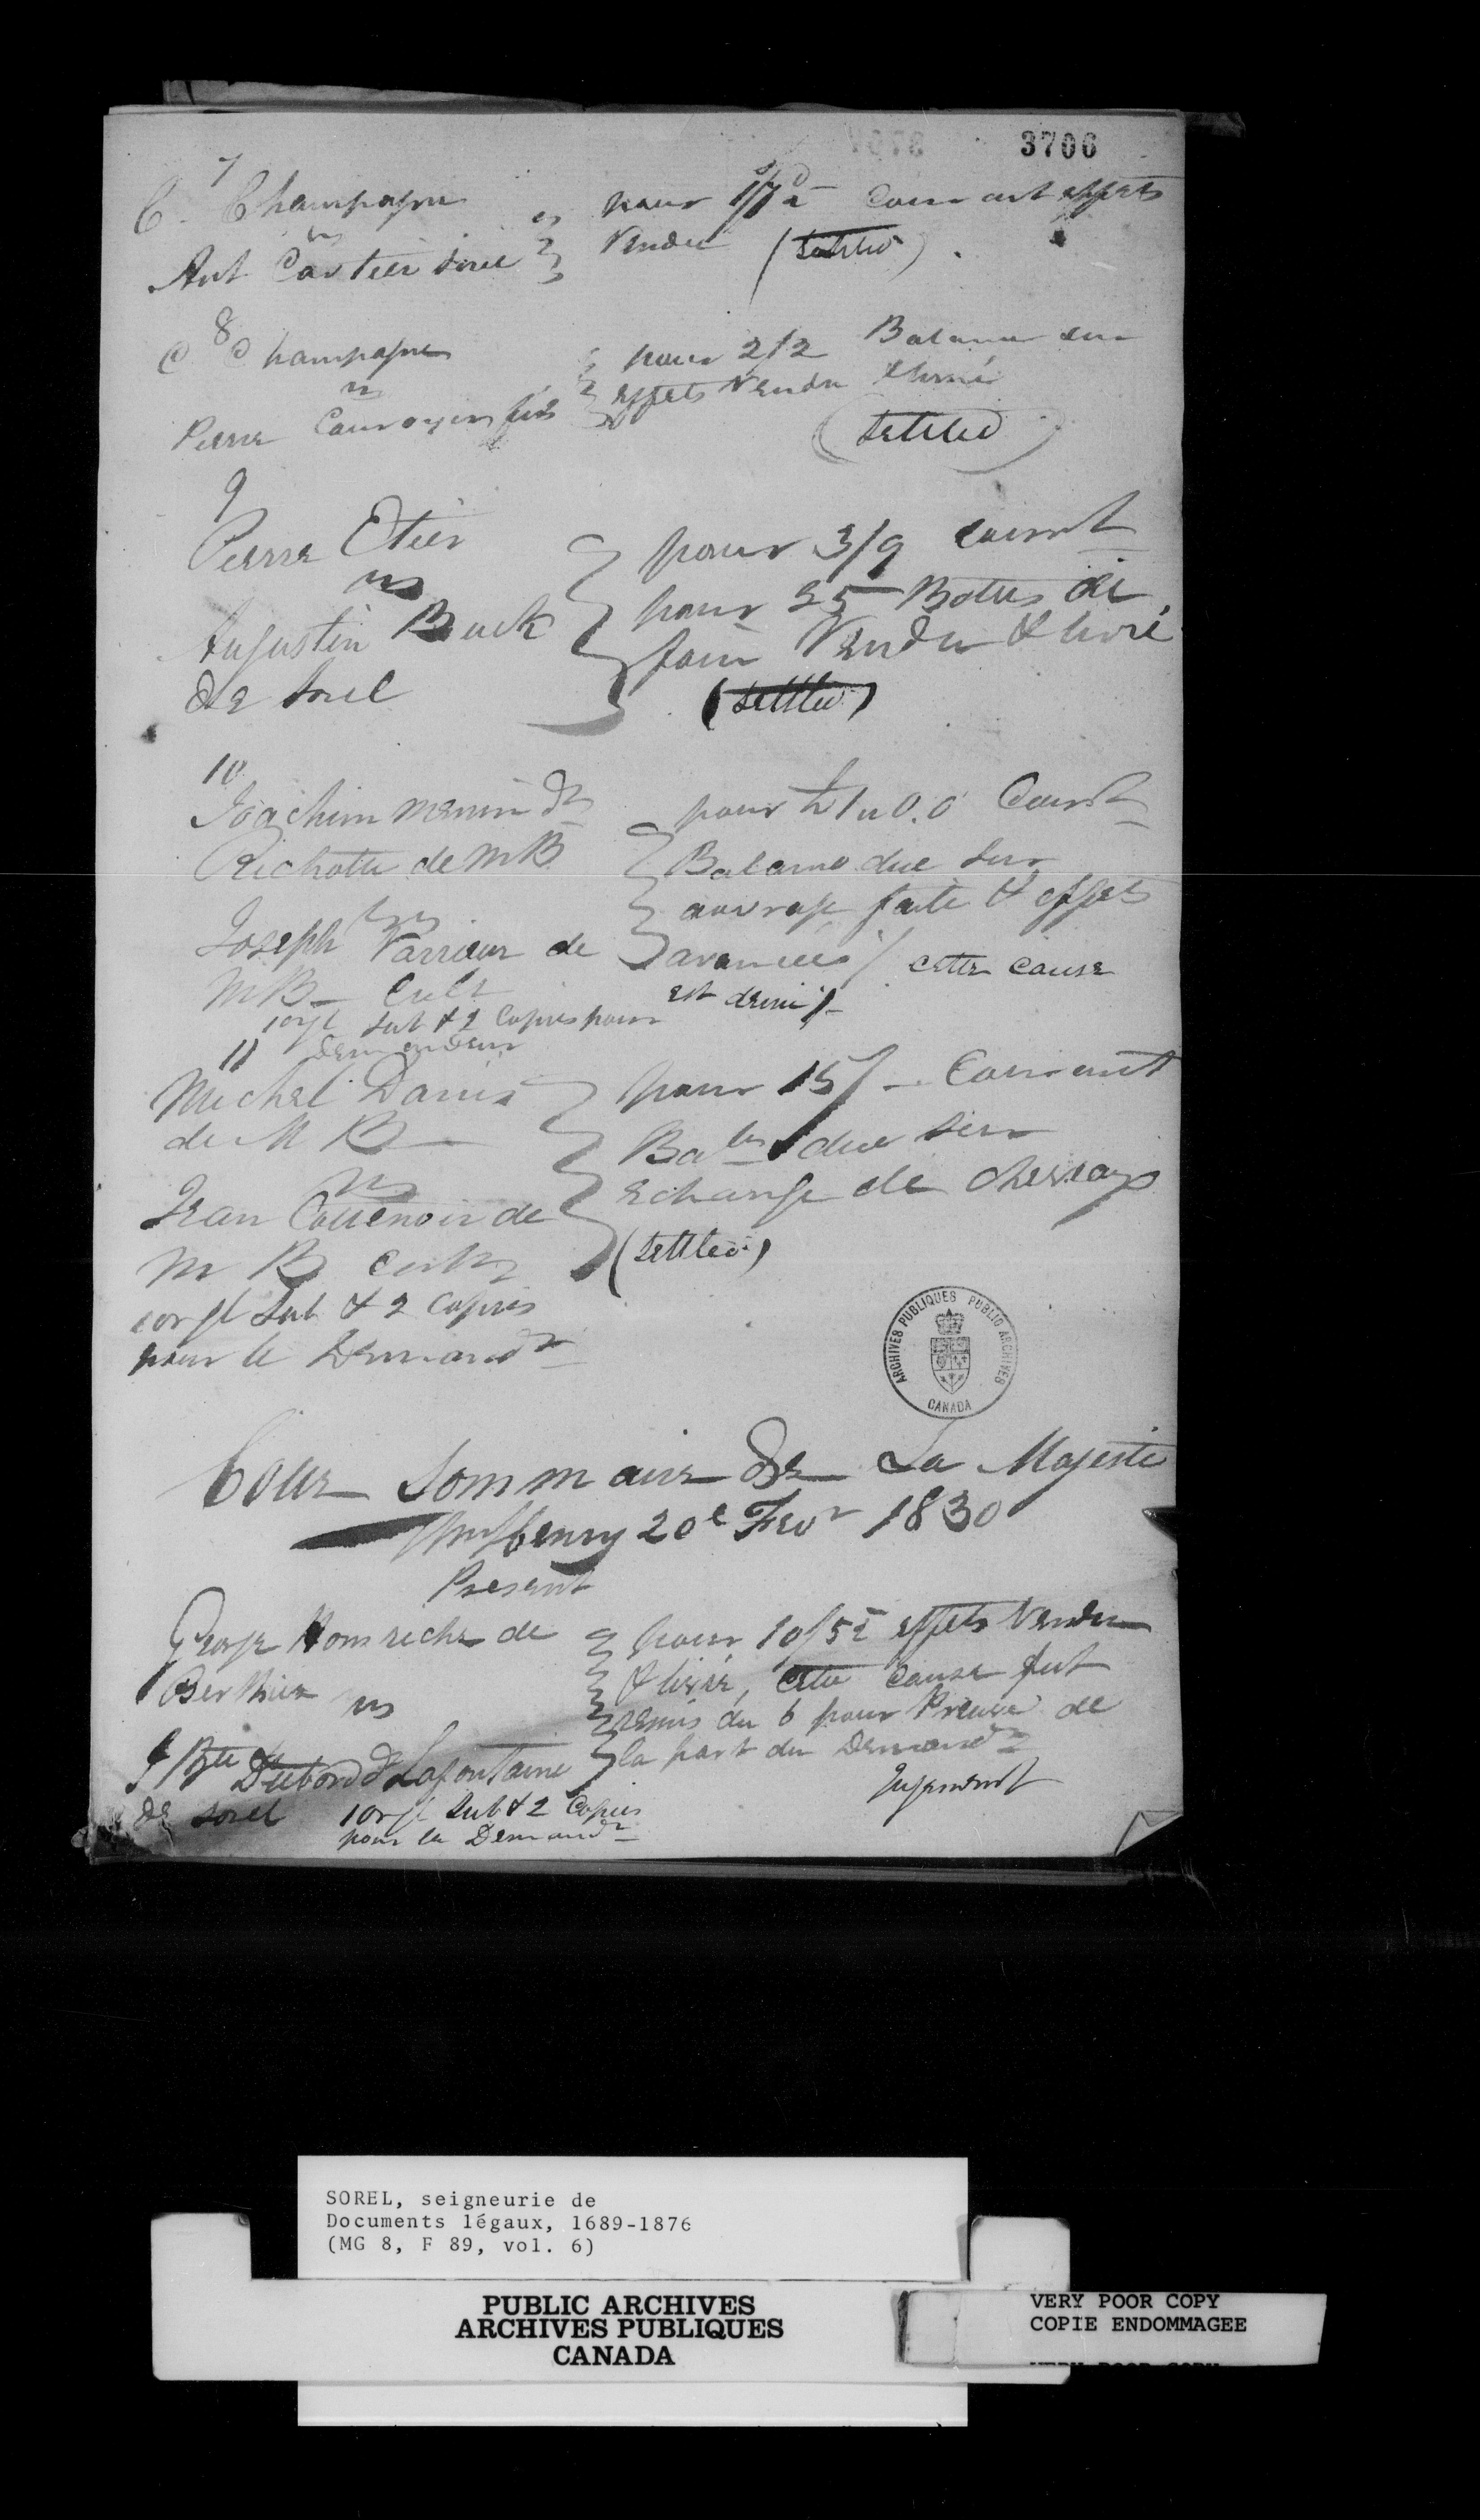 3706
7
C. Champagne
vs
Ant Cartier Sorel
pour 1/7d Courant effets
Vendu (settled).
8
C Champagne
vs
Pierre Cournoyer fils
pour 2/2 Balance sur
effets Vendu & livré
(settled)
9
Pierre Etier
vs
Augustin Buck
de Sorel
pour 3/9 courant
pour 25 Bottes de
foin Vendu & livré
(settled)
10
Joachim Menin dt
Richotte de MB
vs
Joseph Varrieur de
MB Cult
1 orgl Sub & 2 Copies pour
demandeur
pour £1 " 0.0 Courst
Balance due sur
ouvrage faite & effets
avancées / cette cause
est
11
Michel Danis
de M B
vs
Jean Cottenoir de
M B Cultr
1 orgl Sub & 2 Copies
pour le Demandr
pour 15/ - Courant
Balce due sur
echange de chevaux
(settled)
ARCHIVES PUBLIQUES PUBLIC ARCHIVES
CANADA
Cour Sommaire de Sa Majesté
Wm Henry 20e Fevr 1830
Present
George de
Berthier vs
J Bte Dubord dt Lafontaine
de Sorel 1 orgl Sub & 2 Copies
pour le Demandr
pour 10/5d effets Vendu
& livré, cette cause fut
remis du 6 pour Preuve de
la part du Demandr
Jugement
SOREL, seigneurie de
Documents légaux, 1689-1876
(MG 8, F 89, vol. 6)
PUBLIC ARCHIVES
ARCHIVES PUBLIQUES
CANADA
VERY POOR COPY
COPIE ENDOMMAGEE
VERY POOR COPY